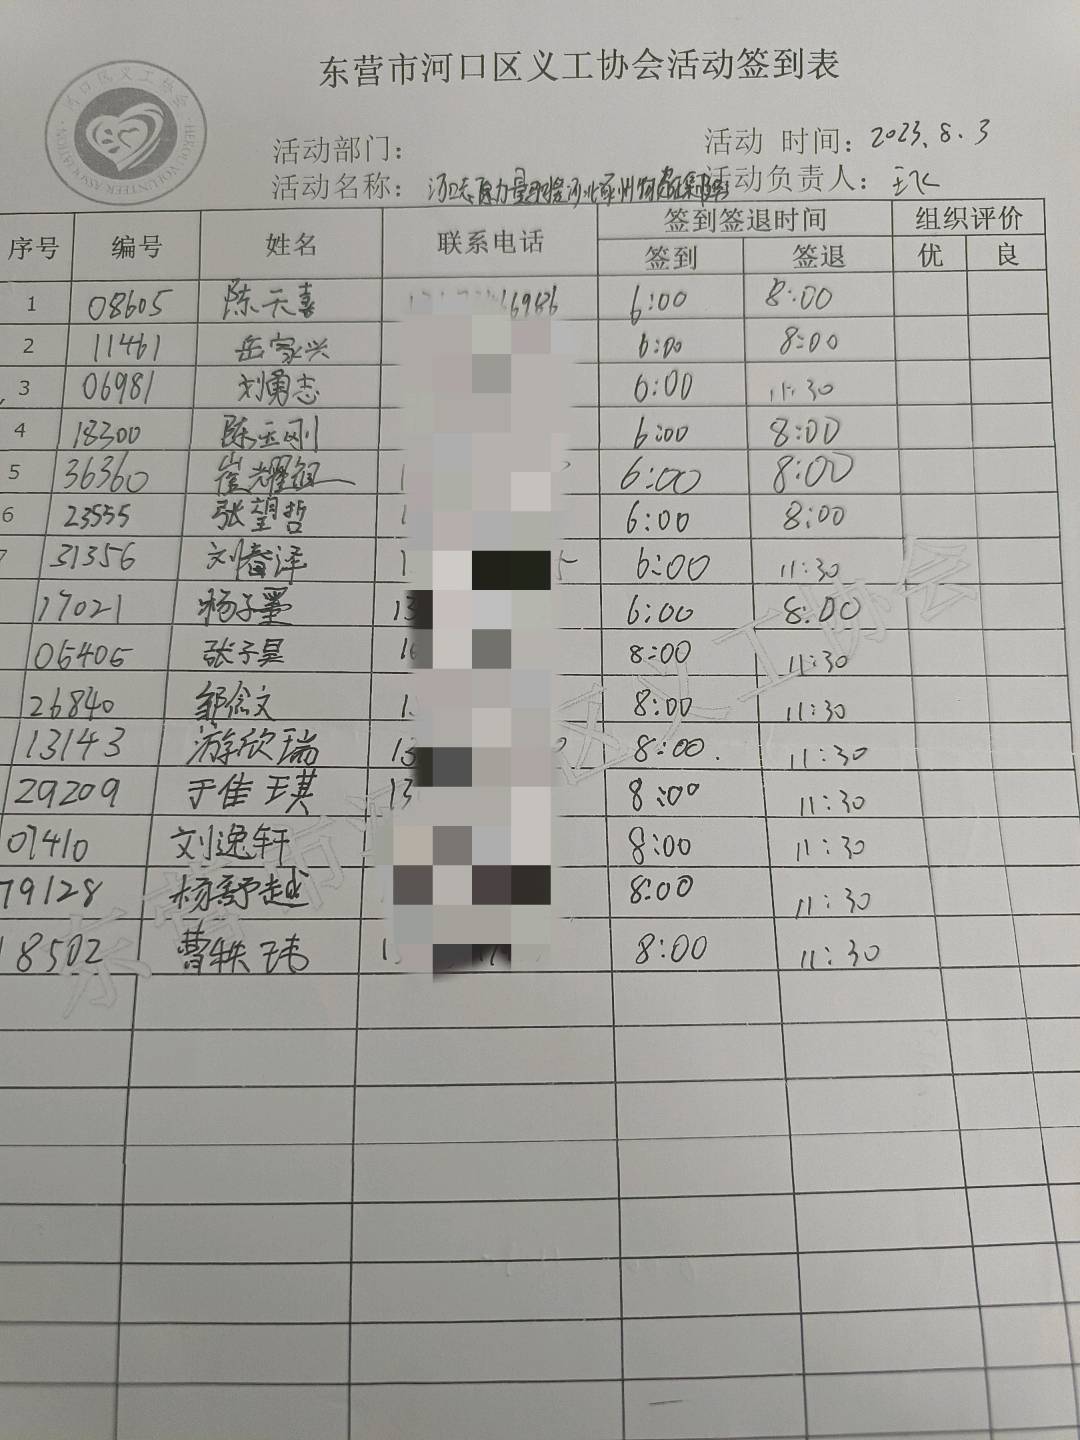 东营市河口区义工协会活动签到表
活动部门： 活动 时间：2023.8.3
活动名称： 活动负责人：王飞
序号 编号 姓名 联系电话 签到签退时间 组织评价
签到 签退 优 良
1 08605 陈天嘉 66986 6:00 8:00
2 11461 岳家兴 6:00 8:00
3 06981 刘勇志 6:00 11:30
4 18300 陈玉刚 6:00 8:00
5 36360 崔耀祖 6:00 8:00
6 23555 张望哲 6:00 8:00
7 31356 刘春泽 6:00 11:30
17021 杨子墨 13 6:00 8:00
05405 张子昊 8:00 11:30
26840 邹念文 8:00 11:30
13143 游欣瑞 13 8:00 11:30
29209 于佳琪 13 8:00 11:30
07410 刘逸轩 8:00 11:30
79128 杨舒越 8:00 11:30
18502 曹轶玮 8:00 11:30
东营市河口区义工协会